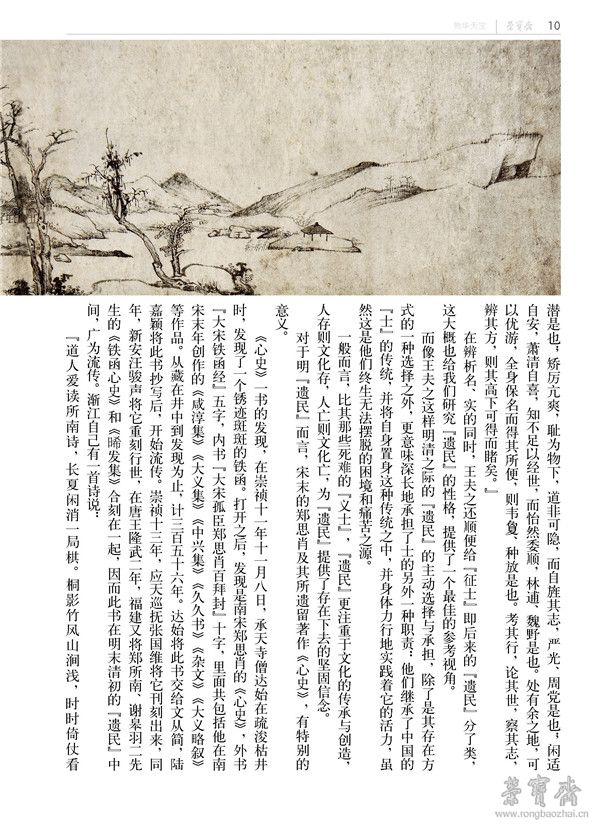 物华天宝
荣宝斋
10
潜是也，矫厉亢爽，耻为物下，道非可隐，而自旌其志，严光、周党是也，闲适
自安，萧清自喜，知不足以经世，而怡然委顺，林逋、魏野是也。处有余之地，可
以优游，全身保名而得其所便，则韦夐、种放是也。考其行，论其世，察其志，
辨其方，则其高下可得而睹矣。』
在辨析名、实的同时，王夫之还顺便给『征士』即后来的『遗民』分了类，
这大概也给我们研究『遗民』的性格，提供了一个最佳的参考视角。
而像王夫之这样明清之际的『遗民』的主动选择与承担，除了是其存在方
式的一种选择之外，更意味深长地承担了士的另外一种职责：他们继承了中国的
『士』的传统，并将自身置身这种传统之中，并身体力行地实践着它的活力，虽
然这是他们终生无法摆脱的困境和痛苦之源。
一般而言，比其那些死难的『义士』，『遗民』更注重于文化的传承与创造，
人存则文化存，人亡则文化亡，为『遗民』提供了存在下去的坚固信念。
对于明『遗民』而言，宋末的郑思肖及其所遗留著作《心史》，有特别的
意义。
《心史》一书的发现，在崇祯十一年十一月八日，承天寺僧达始在疏浚枯井
时，发现了一个锈迹斑斑的铁函。打开之后，发现是南宋郑思肖的《心史》，外书
『大宋铁函经』五字，内书『大宋孤臣郑思肖百拜封』十字，里面共包括他在南
宋末年创作的《咸淳集》《大义集》《中兴集》《久久书》《杂文》《大义略叙》
等作品。从藏在井中到发现为止，计三百五十六年。达始将此书交给文从简，陆
嘉颖将此书抄写后，开始流传。崇祯十三年，应天巡抚张国维将它刊刻出来，同
年，新安汪骏声将它重刻行世，在唐王隆武二年，福建又将郑所南、谢皋羽二先
生的《铁函心史》和《晞发集》合刻在一起，因而此书在明末清初的『遗民』中
间，广为流传。渐江自己有一首诗说：
『道人爱读所南诗，长夏闲消一局棋。桐影竹风山涧浅，时时倚仗看
荣宝斋
www.rongbaozhai.cn